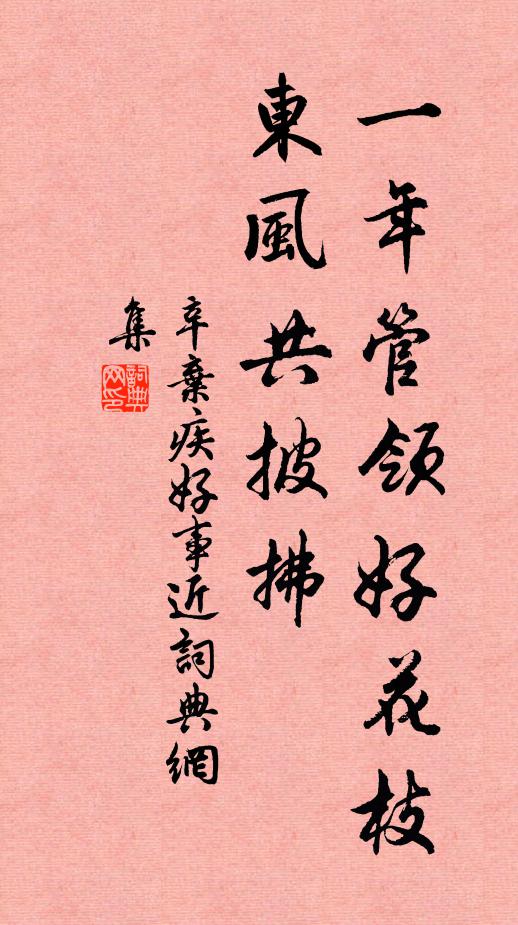 一年管領好花枝
東風共披拂
辛棄疾好事近詞典網
集
詞典網印